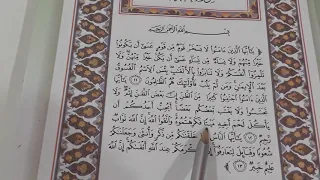 بسم الله الرحمن الرحيم
يَٰٓأَيُّهَا ٱلَّذِينَ ءَامَنُوا۟ لَا يَسْخَرْ قَوْمٌ مِّن قَوْمٍ عَسَىٰٓ أَن يَكُونُوا۟
خَيْرًا مِّنْهُمْ وَلَا نِسَآءٌ مِّن نِّسَآءٍ عَسَىٰٓ أَن يَكُنَّ خَيْرًا مِّنْهُنَّ وَلَا
تَلْمِزُوٓا۟ أَنفُسَكُمْ وَلَا تَنَابَزُوا۟ بِٱلْأَلْقَٰبِ بِئْسَ ٱلِٱسْمُ ٱلْفُسُوقُ
بَعْدَ ٱلْإِيمَٰنِ وَمَن لَّمْ يَتُبْ فَأُو۟لَٰٓئِكَ هُمُ ٱلظَّٰلِمُونَ ١١ يَٰٓأَيُّهَا
ٱلَّذِينَ ءَامَنُوا۟ ٱجْتَنِبُوا۟ كَثِيرًا مِّنَ ٱلظَّنِّ إِنَّ بَعْضَ ٱلظَّنِّ إِثْمٌ وَلَا
تَجَسَّسُوا۟ وَلَا يَغْتَب بَّعْضُكُم بَعْضًا أَيُحِبُّ أَحَدُكُمْ أَن
يَأْكُلَ لَحْمَ أَخِيهِ مَيْتًا فَكَرِهْتُمُوهُ وَٱتَّقُوا۟ ٱللَّهَ إِنَّ ٱللَّهَ تَوَّابٌ
رَّحِيمٌ ١٢ يَٰٓأَيُّهَا ٱلنَّاسُ خَلَقْنَٰكُم مِّن ذَكَرٍ وَأُنثَىٰ وَجَعَلْنَٰكُمْ
شُعُوبًا وَقَبَآئِلَ لِتَعَارَفُوٓا۟ أَكْرَمَكُمْ عِندَ ٱللَّهِ أَتْقَىٰكُمْ إِنَّ ٱللَّهَ
عَلِيمٌ خَبِيرٌ ١٣